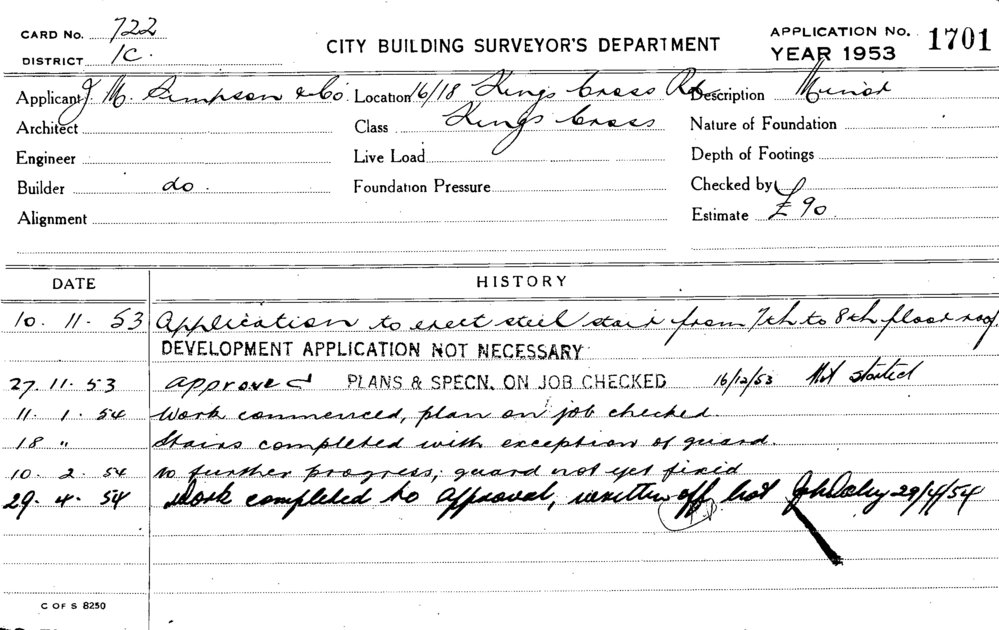 CARD No. 722
DISTRICT 1C.
CITY BUILDING SURVEYOR'S DEPARTMENT
APPLICATION No. 1701
YEAR 1953
Applicant J. M. Simpson & Co. Location 16/18 Kings Cross Rd. Description Minor
Architect Class Kings Cross Nature of Foundation
Engineer Live Load Depth of Footings
Builder do. Foundation Pressure Checked by
Alignment Estimate £90
DATE HISTORY
10. 11. 53 Application to erect steel stair from 7th to 8th floor roof.
DEVELOPMENT APPLICATION NOT NECESSARY
27. 11. 53 approved PLANS & SPECN. ON JOB CHECKED 16/12/53 Not started
11. 1. 54 Work commenced, plan on job checked.
18 " Stairs completed with exception of guard.
10. 2. 54 no further progress; guard not yet fixed
29. 4. 54 Work completed to approval, written off list 29/4/54
C OF S 8250